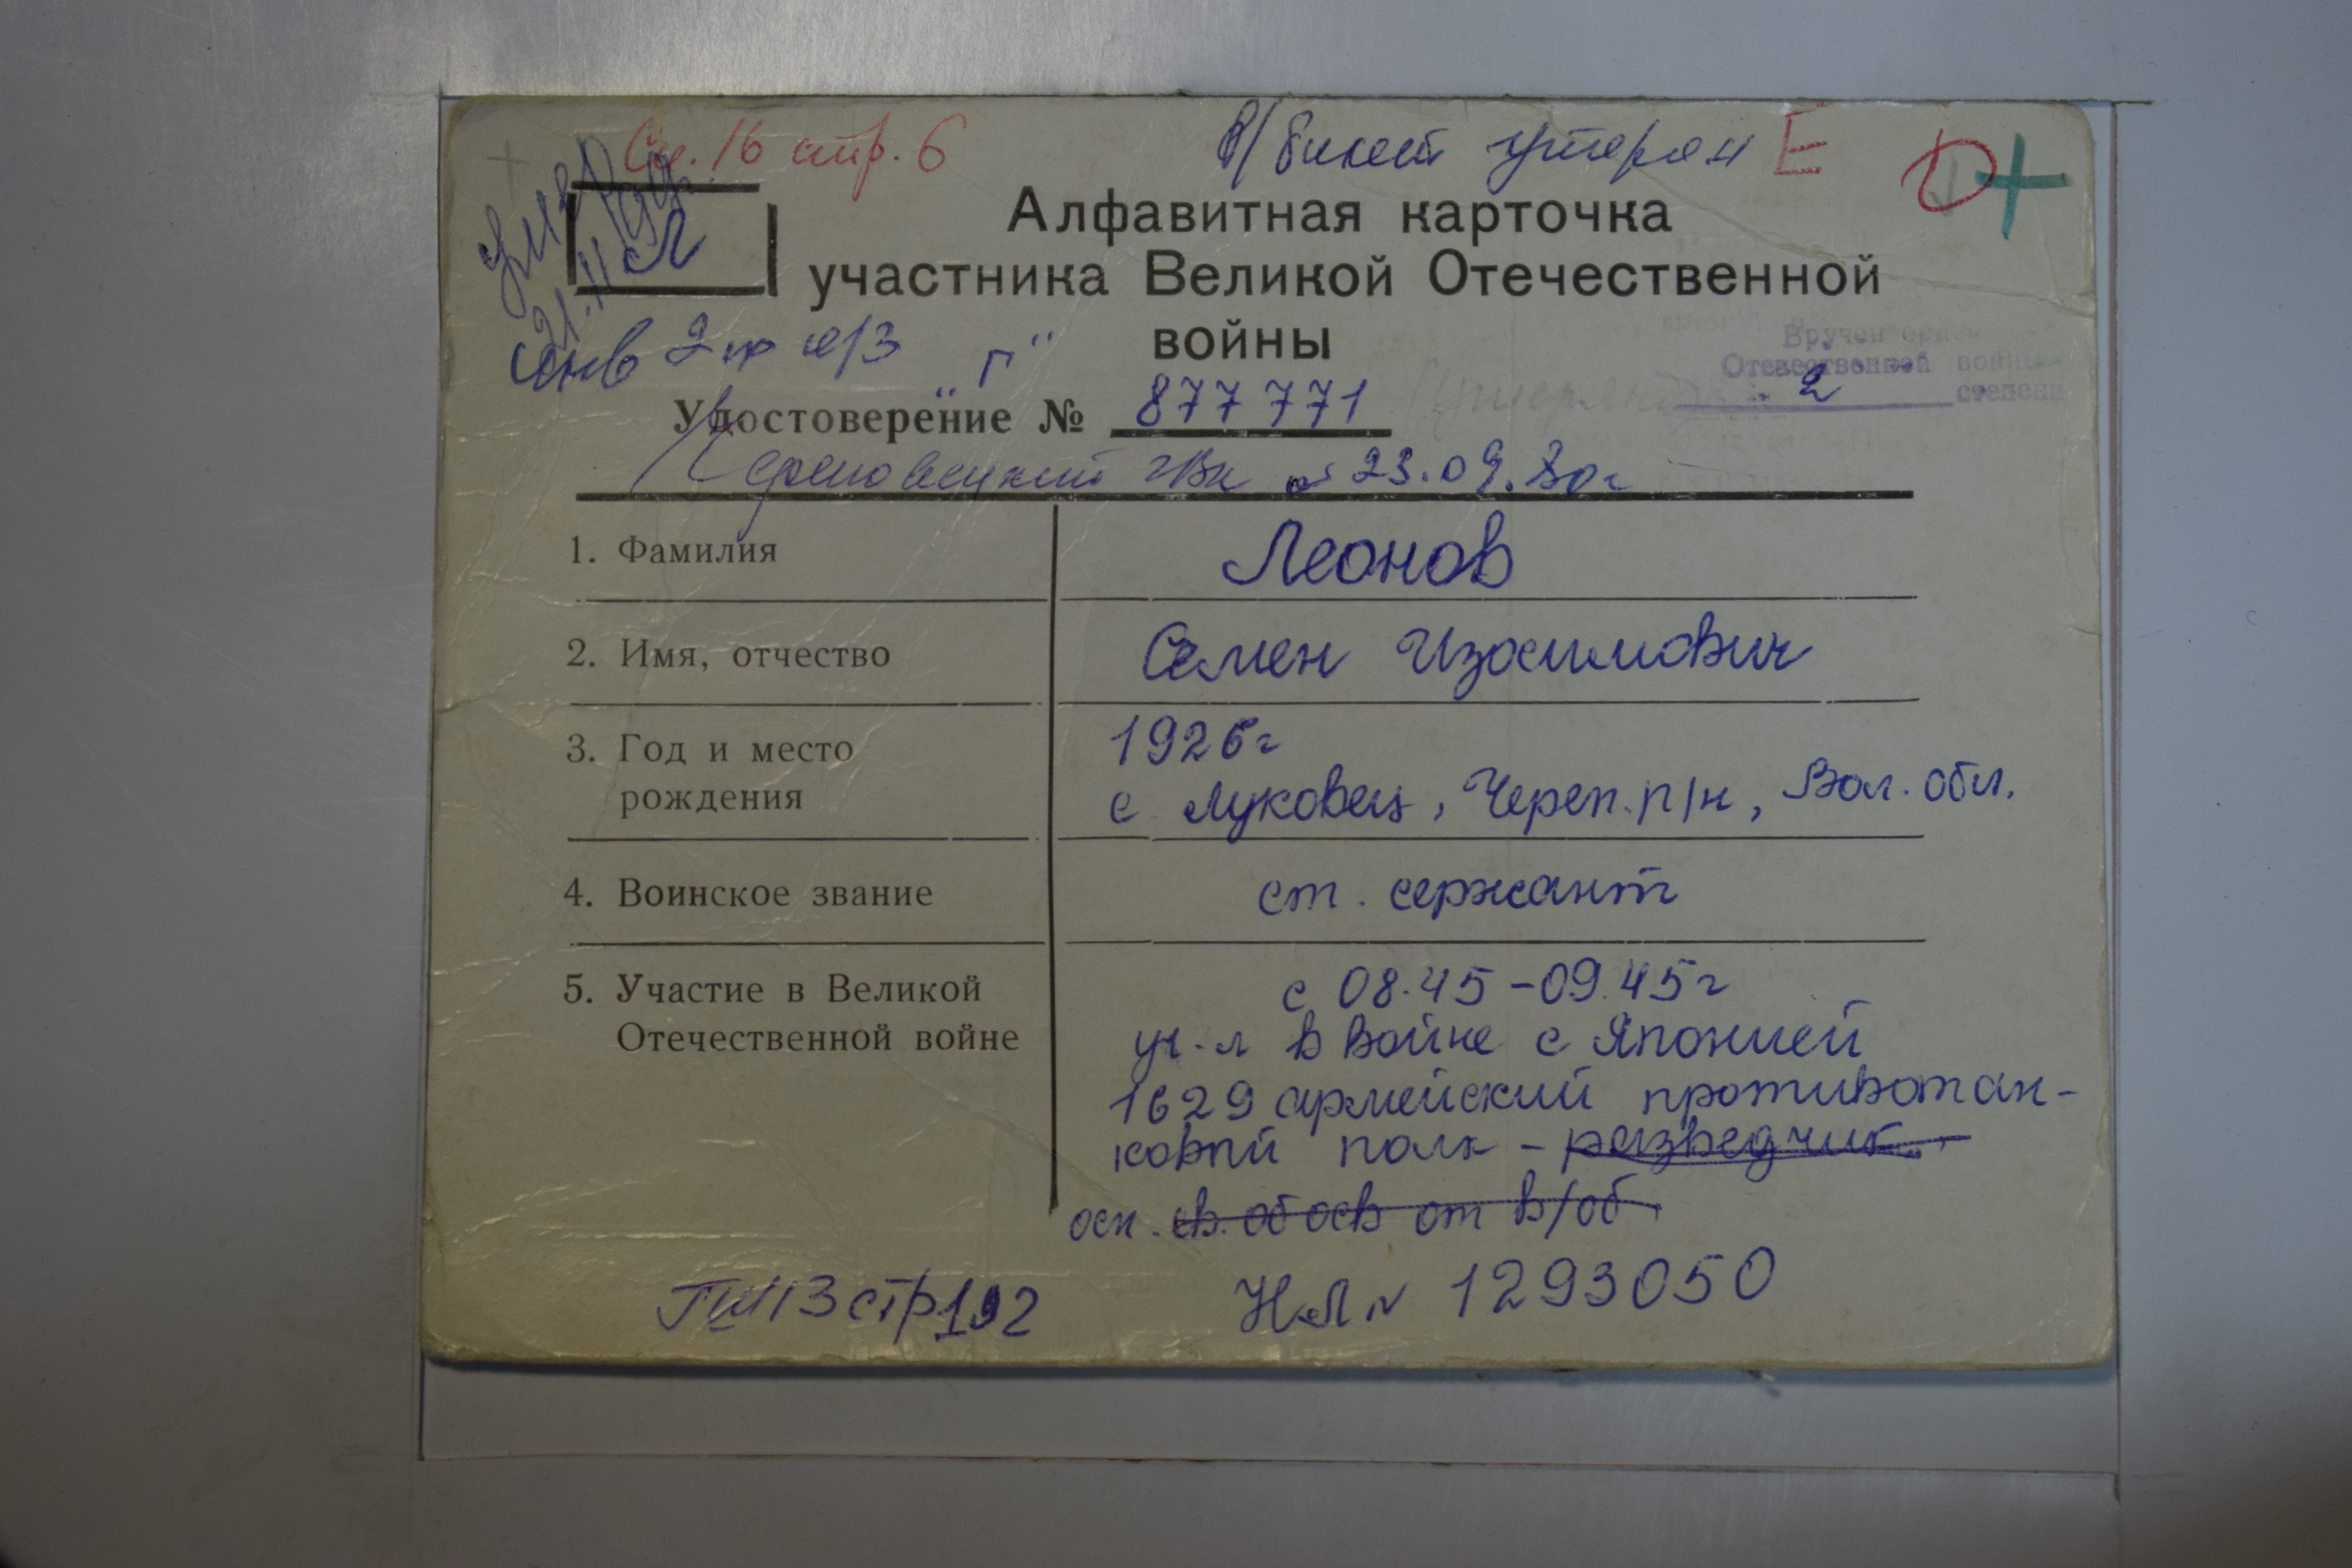 Сп. 16 стр. 6
В/билет утерян Е
умер
21.11
Л
Алфавитная карточка
участника Великой Отечественной
войны
"Г"
Вручен орден
Отечественной войны
2 степени
Удостоверение № 877771
Череповецкий ГВК от 23.09.80г
1. Фамилия
Леонов
2. Имя, отчество
Семен Изосимович
3. Год и место
рождения
1926г
с Луковец, Череп. р/н, Вол. обл.
4. Воинское звание
ст. сержант
5. Участие в Великой
Отечественной войне
с 08.45-09.45г
уч-л в войне с Японией
1629 армейский противотан-
ковый полк - разведчик
осн. св. об осв от в/об
стр 192
НЛ № 1293050